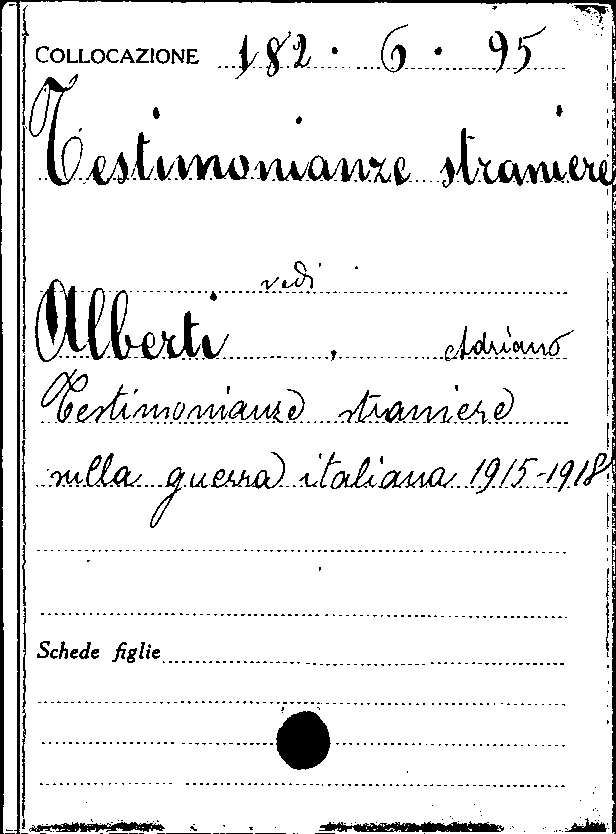 COLLOCAZIONE 182 · 6 · 95
Testimonianze straniere
vedi
Alberti , Adriano
Testimonianze straniere
sulla guerra italiana 1915-1918
Schede figlie